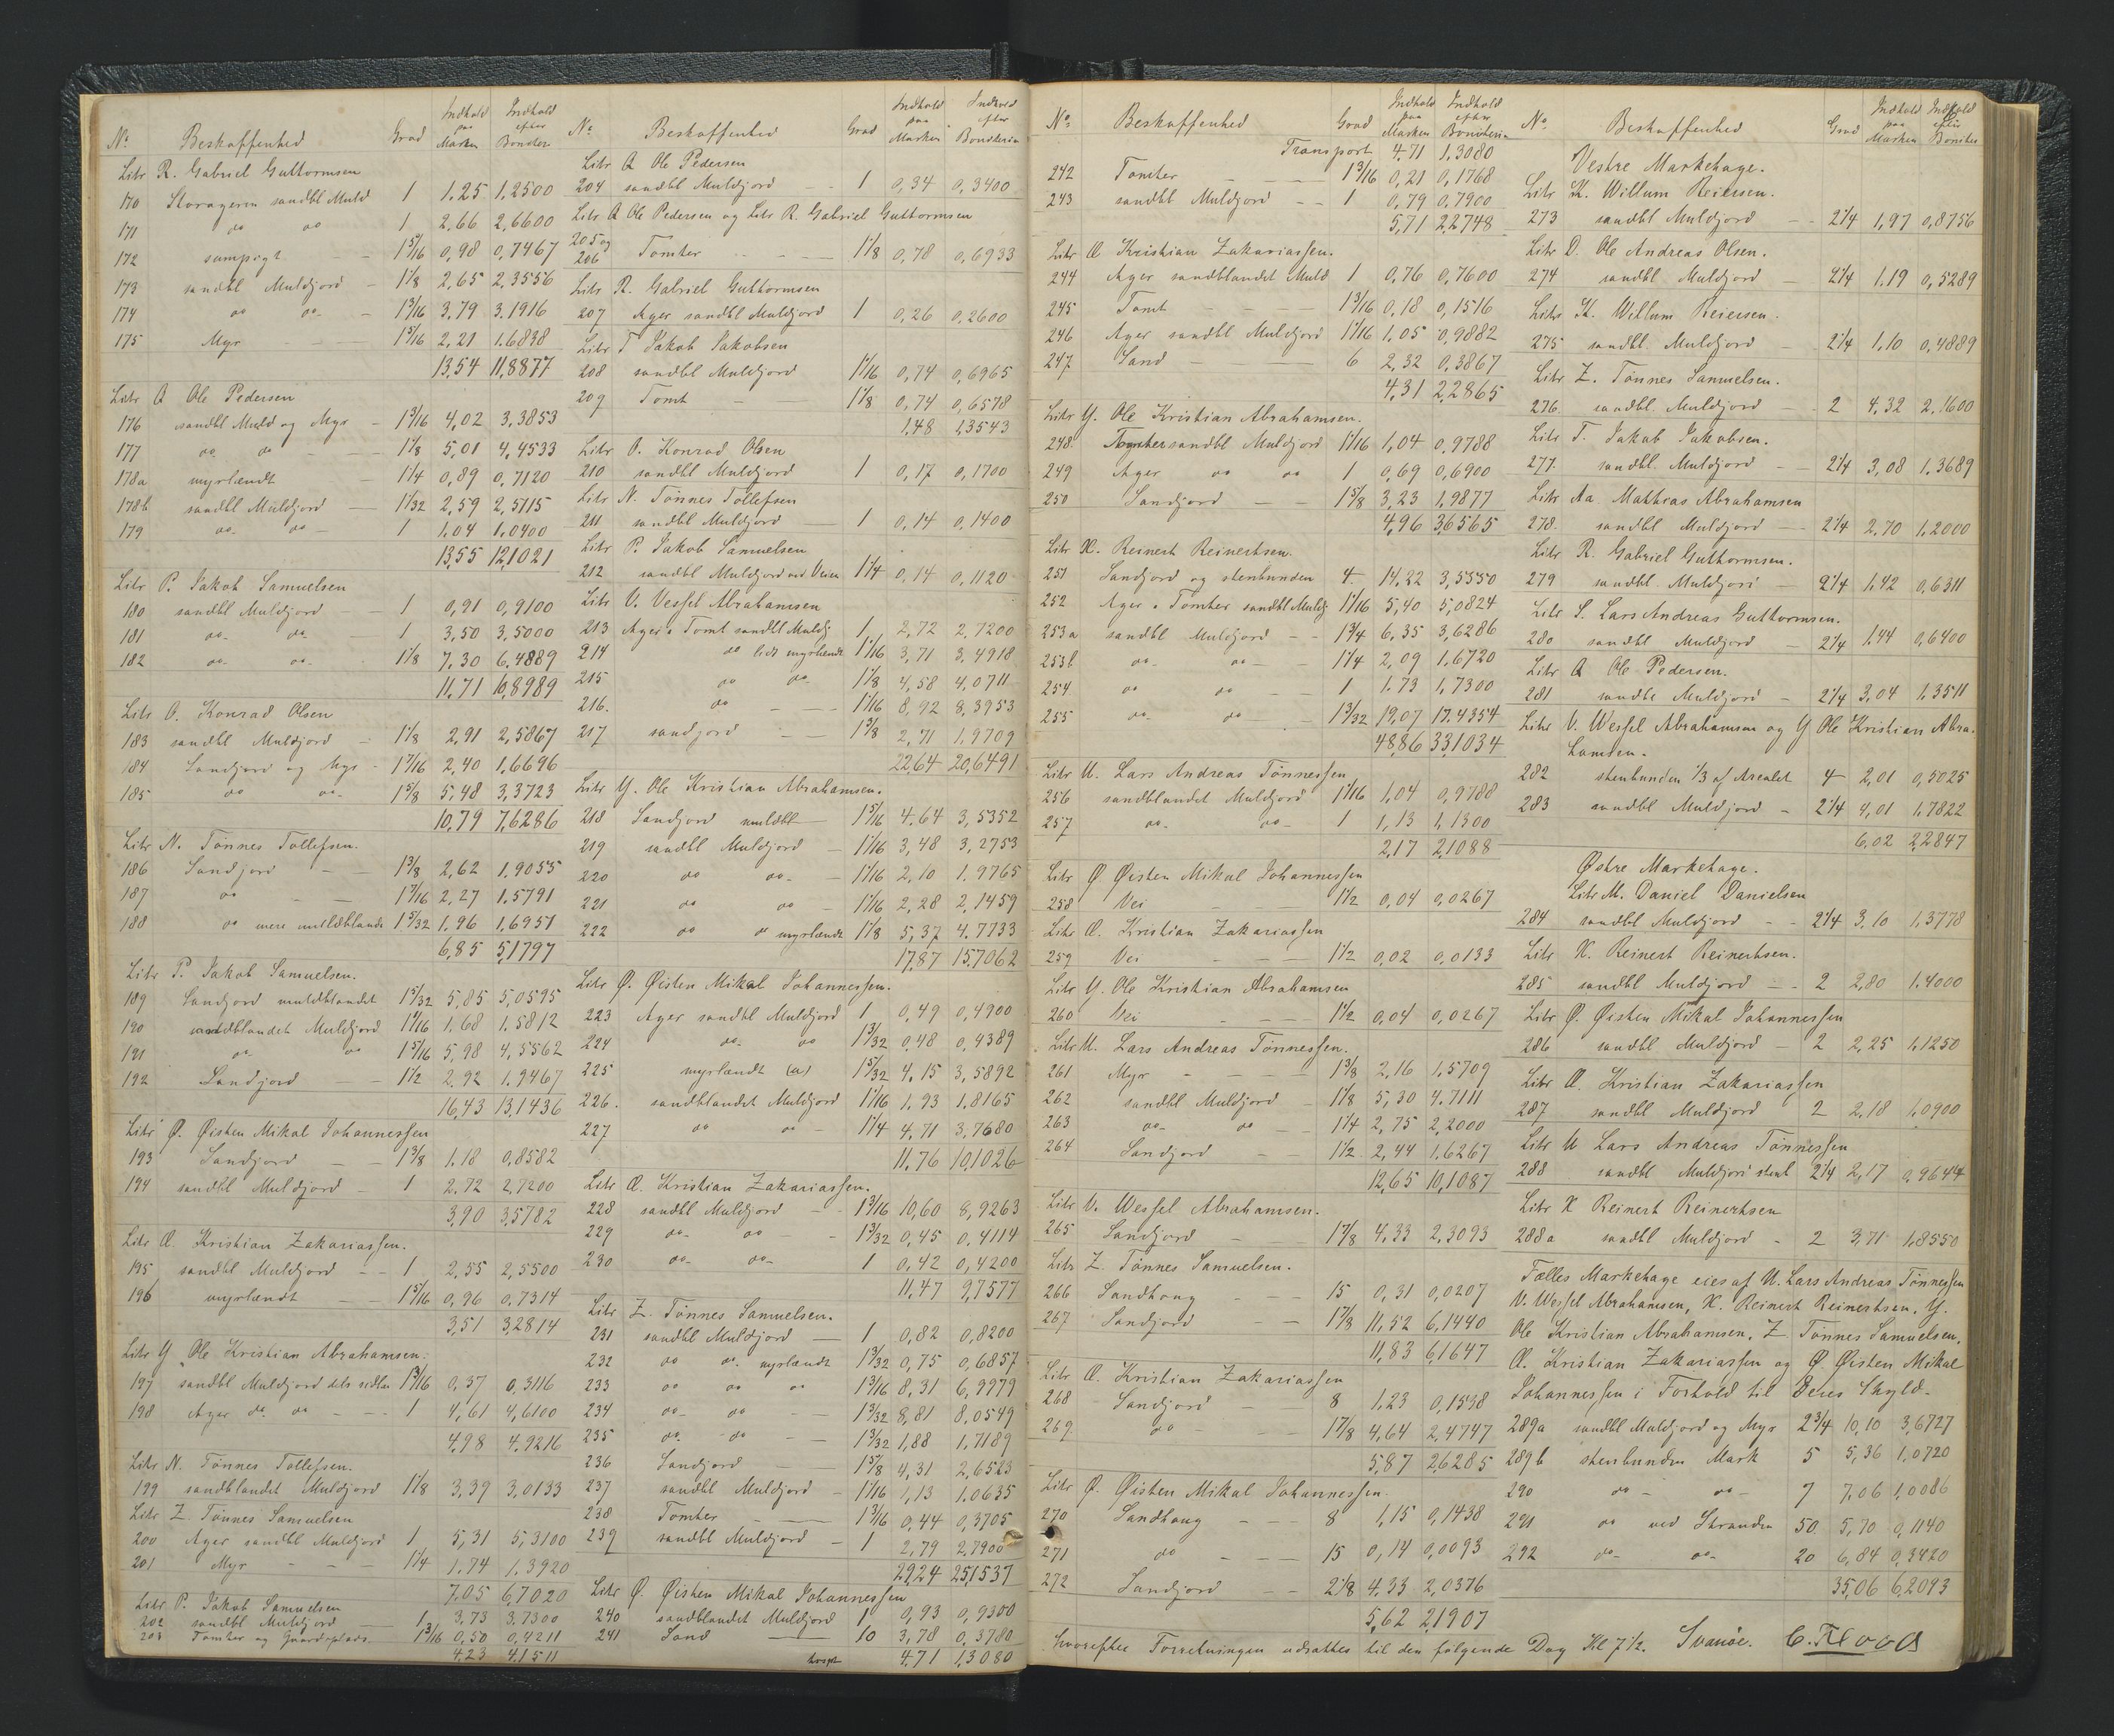 No. Beskaffenhed Grad Indhold paa Marken Indhold efter Boniter
Litr R. Gabriel Guttormsen
170 Storageren sandbl Muld 1 1,25 1,2500
171 do do 1 2,66 2,6600
172 sumpigt 1 5/16 0,98 0,7467
173 sandbl Muldjord 1 1/8 2,65 2,3556
174 do do 1 3/16 3,79 3,1916
175 Myr 1 5/16 2,21 1,6838
13,54 11,8877
Litr Q Ole Pedersen
176 sandbl Muld og Myr 1 3/16 4,02 3,3853
177 do do 1 1/8 5,01 4,4533
178a myrlændt 1 1/4 0,89 0,7120
178b sandbl Muldjord 1 1/32 2,59 2,5115
179 do do 1 1,04 1,0400
13,55 12,1021
Litr P. Jakob Samuelsen
180 sandbl Muldjord 1 0,91 0,9100
181 do do 1 3,50 3,5000
182 do do 1 1/8 7,30 6,4889
11,71 10,8989
Litr O. Konrad Olsen
183 sandbl Muldjord 1 1/8 2,91 2,5867
184 Sandjord og Myr 1 7/16 2,40 1,6696
185 do do 1 5/8 5,48 3,3723
10,79 7,6286
Litr N. Tønnes Tollefsen.
186 Sandjord 1 3/8 2,62 1,9055
187 do 1 7/16 2,27 1,5791
188 do mere muldblandt 1 5/32 1,96 1,6951
6,85 5,1797
Litr P. Jakob Samuelsen.
189 Sandjord muldblandet 1 5/32 5,85 5,0595
190 sandblandet Muldjord 1 1/16 1,68 1,5812
191 do do 1 5/16 5,98 4,5562
192 Sandjord 1 1/2 2,92 1,9467
16,43 13,1436
Litr Ø. Øisten Mikal Johannessen
193 Sandjord 1 3/8 1,18 0,8582
194 sandbl Muldjord 1 2,72 2,7200
3,90 3,5782
Litr Æ. Kristian Zakariassen.
195 sandbl Muldjord 1 2,55 2,5500
196 myrlændt 1 5/16 0,96 0,7314
3,51 3,2814
Litr Y. Ole Kristian Abrahamsen.
197 sandbl Muldjord dels sidlæ 1 3/16 0,37 0,3116
198 Ager do do 1 4,61 4,6100
4,98 4,9216
Litr N. Tønnes Tollefsen.
199 sandblandet Muldjord 1 1/8 3,39 3,0133
Litr Z. Tønnes Samuelsen
200 Ager sandbl Muldjord 1 5,31 5,3100
201 Myr 1 1/4 1,74 1,3920
7,05 6,7020
Litr P. Jakob Samuelsen
202 sandbl Muldjord 1 3,73 3,7300
203 Tomter og Gaardsplads 1 3/16 0,50 0,4211
4,23 4,1511
No. Beskaffenhed Grad Indhold paa Marken Indhold efter Boniterin
Litr Q Ole Pedersen
204 sandbl Muldjord 1 0,34 0,3400
Litr Q Ole Pedersen og Litr R. Gabriel Guttormsen
205 og
206 Tomter 1 1/8 0,78 0,6933
Litr R. Gabriel Guttormsen
207 Ager sandbl Muldjord 1 0,26 0,2600
Litr T Jakob Jakobsen
208 sandbl Muldjord 1 1/16 0,74 0,6965
209 Tomt 1 1/8 0,74 0,6578
1,48 1,3543
Litr O. Konrad Olsen
210 sandbl Muldjord 1 0,17 0,1700
Litr N. Tønnes Tollefsen
211 sandbl Muldjord 1 0,14 0,1400
Litr P. Jakob Samuelsen
212 sandbl Muldjord ved Veien 1 1/4 0,14 0,1120
Litr V. Vessel Abrahamsen
213 Ager & Tomt sandbl Muldj 1 2,72 2,7200
214 do lidt myrlændt 1 1/16 3,71 3,4918
215 do do 1 1/8 4,58 4,0711
216. do 1 1/16 8,92 8,3953
217 sandjord 1 3/8 2,71 1,9709
22,64 20,6491
Litr Y. Ole Kristian Abrahamsen.
218 Sandjord muldbl 1 5/16 4,64 3,5352
219 sandbl Muldjord 1 1/16 3,48 3,2753
220 do do 1 1/16 2,10 1,9765
221 do do 1 1/16 2,28 2,1459
222 do do myrlændt 1 1/8 5,37 4,7733
17,87 15,7062
Litr Ø. Øisten Mikal Johannessen.
223 Ager sandbl Muldjord 1 0,49 0,4900
224 do do 1 3/32 0,48 0,4389
225 myrlændt (a) 1 5/32 4,15 3,5892
226. sandblandet Muldjord 1 1/16 1,93 1,8165
227 do do 1 1/4 4,71 3,7680
11,76 10,1026
Litr Æ. Kristian Zakariassen.
228 sandbl Muldjord 1 3/16 10,60 8,9263
229 do do 1 3/32 0,45 0,4114
230 do do 1 0,42 0,4200
11,47 9,7577
Litr Z. Tønnes Samuelsen.
231 sandbl Muldjord 1 0,82 0,8200
232 do do myrlændt 1 3/32 0,75 0,6857
233 do do do 1 3/16 8,31 6,9979
234 do do 1 3/32 8,81 8,0549
235 do do 1 3/32 1,88 1,7189
236 Sandjord 1 5/8 4,31 2,6523
237 sandbl Muldjord 1 1/16 1,13 1,0635
238 Tomter 1 3/16 0,44 0,3705
239 sandbl Muldjord 1 2,79 2,7900
29,24 25,1537
Litr Ø. Øisten Mikal Johannessen
240 sandblandet Muldjord 1 0,93 0,9300
241 Sand 10 3,78 0,3780
trspt 4,71 1,3080
No. Beskaffenhed Grad Indhold paa Marken Indhold efter Boniterin
Transport 4,71 1,3080
242 Tomter 1 3/16 0,21 0,1768
243 sandbl Muldjord 1 0,79 0,7900
5,71 2,2748
Litr Æ Kristian Zakariassen.
244 Ager sandblandet Muld 1 0,76 0,7600
245 Tomt 1 3/16 0,18 0,1516
246 Ager sandbl Muldjord 1 1/16 1,05 0,9882
247 Sand 6 2,32 0,3867
4,31 2,2865
Litr Y. Ole Kristian Abrahamsen.
248. Tomter sandbl Muldjord 1 1/16 1,04 0,9788
249 Ager do do 1 0,69 0,6900
250 Sandjord 1 5/8 3,23 1,9877
4,96 3,6565
Litr X. Reinert Reinertsen.
251 Sandjord og stenbunden 4 14,22 3,5550
252 Ager & Tomter sandbl Muldj 1 1/16 5,40 5,0824
253a sandbl Muldjord 1 3/4 6,35 3,6286
253b do do 1 1/4 2,09 1,6720
254 do do 1 1,73 1,7300
255 do do 1 3/32 19,07 17,4354
48,86 33,1034
Litr U. Lars Andreas Tønnessen
256 sandblandet Muldjord 1 1/16 1,04 0,9788
257 do do 1 1,13 1,1300
2,17 2,1088
Litr Ø Øisten Mikal Johannessen
258 Vei 1 1/2 0,04 0,0267
Litr Æ. Kristian Zakariassen
259 Vei 1 1/2 0,02 0,0133
Litr Y. Ole Kristian Abrahamsen
260 Vei 1 1/2 0,04 0,0267
Litr U. Lars Andreas Tønnessen.
261 Myr 1 3/8 2,16 1,5709
262 sandbl Muldjord 1 1/8 5,30 4,7111
263 do do 1 1/4 2,75 2,2000
264 Sandjord 1 1/2 2,44 1,6267
12,65 10,1087
Litr V. Wessel Abrahamsen.
265 Sandjord 1 7/8 4,33 2,3093
Litr Z. Tønnes Samuelsen.
266 Sandhaug 15 0,31 0,0207
267 Sandjord 1 7/8 11,52 6,1440
11,83 6,1647
Litr Æ. Kristian Zakariassen
268 Sandjord 8 1,23 0,1538
269 do 1 7/8 4,64 2,4747
5,87 2,6285
Litr Ø. Øisten Mikal Johannessen.
270 Sandhaug 8 1,15 0,1438
271 do 15 0,14 0,0093
272 Sandjord 2 1/8 4,33 2,0376
5,62 2,1907
No. Beskaffenhed Grad Indhold paa Marken Indhold efter Boniter
Vestre Markehage.
Litr K. Willum Reiersen.
273 sandbl Muldjord 2 1/4 1,97 0,8756
Litr D. Ole Andreas Olsen.
274 sandbl Muldjord 2 1/4 1,19 0,5289
Litr K. Willum Reiersen.
275 sandbl. Muldjord 2 1/4 1,10 0,4889
Litr Z. Tønnes Samuelsen.
276. sandbl. Muldjord 2 4,32 2,1600
Litr T. Jakob Jakobsen.
277. sandbl. Muldjord 2 1/4 3,08 1,3689
Litr Aa. Mathias Abrahamsen
278. sandbl Muldjord 2 1/4 2,70 1,2000
Litr R. Gabriel Guttormsen.
279 sandbl Muldjord 2 1/4 1,42 0,6311
Litr S. Lars Andreas Guttormsen.
280 sandbl Muldjord 2 1/4 1,44 0,6400
Litr Q Ole Pedersen.
281 sandbl Muldjord 2 1/4 3,04 1,3511
Litr V. Wessel Abrahamsen og Y Ole Kristian Abra-
hamsen.
282 stenbunden 1/3 af Arealet 4 2,01 0,5025
283 sandbl Muldjord 2 1/4 4,01 1,7822
6,02 2,2847
Østre Markehage.
Litr M. Daniel Danielsen
284 sandbl Muldjord 2 1/4 3,10 1,3778
Litr X. Reinert Reinertsen.
285 sandbl Muldjord 2 2,80 1,4000
Litr Ø. Øisten Mikal Johannessen
286 sandbl Muldjord 2 2,25 1,1250
Litr Æ. Kristian Zakariassen
287 sandbl Muldjord 2 2,18 1,0900
Litr U Lars Andreas Tønnessen
288 sandbl Muldjord stenb 2 1/4 2,17 0,9644
Litr X Reinert Reinertsen
288a sandbl Muldjord 2 3,71 1,8550
Fælles Markehage eies af U. Lars Andreas Tønnessen
V. Wessel Abrahamsen, X. Reinert Reinertsen, Y.
Ole Kristian Abrahamsen, Z Tønnes Samuelsen,
Æ. Kristian Zakariassen og Ø Øisten Mikal
Johannessen i Forhold til deres Skyld.
289a sandbl Muldjord og Myr 2 3/4 10,10 3,6727
289b stenbunden Mark 5 5,36 1,0720
290 do do 7 7,06 1,0086
291 do ved Stranden 50 5,70 0,1140
292 do do 20 6,84 0,3420
35,06 6,2093
hvorefter Forretningen udsattes til den følgende Dag Kl 7 1/2. Svanøe.